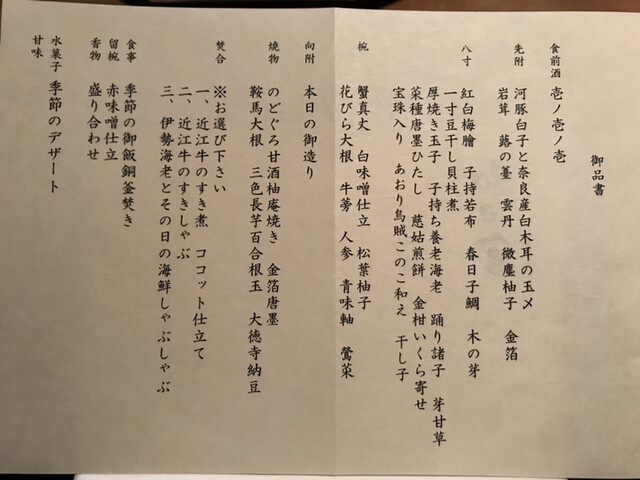 御品書
食前酒 壱ノ壱ノ壱
先附 河豚白子と奈良産白木耳の玉〆
岩茸 蕗の薹 雲丹 微塵柚子 金箔
八寸 紅白梅膾 子持若布 春日子鯛 木の芽
一寸豆干し貝柱煮
厚焼き玉子 子持ち養老海老 踊り諸子 芽甘草
菜種唐墨ひたし 慈姑煎餅 金柑いくら寄せ
宝珠入り あおり烏賊このこ和え 干し子
椀 蟹真丈 白味噌仕立 松葉柚子
花びら大根 牛蒡 人参 青味軸 鶯菜
向附 本日の御造り
焼物 のどぐろ甘酒柚庵焼き 金箔唐墨
鞍馬大根 三色長芋百合根玉 大徳寺納豆
焚合 ※お選び下さい
一、近江牛のすき煮 ココット仕立て
二、近江牛のすきしゃぶ
三、伊勢海老とその日の海鮮しゃぶしゃぶ
食事 季節の御飯銅釜焚き
留椀 赤味噌仕立
香物 盛り合わせ
水菓子 季節のデザート
甘味